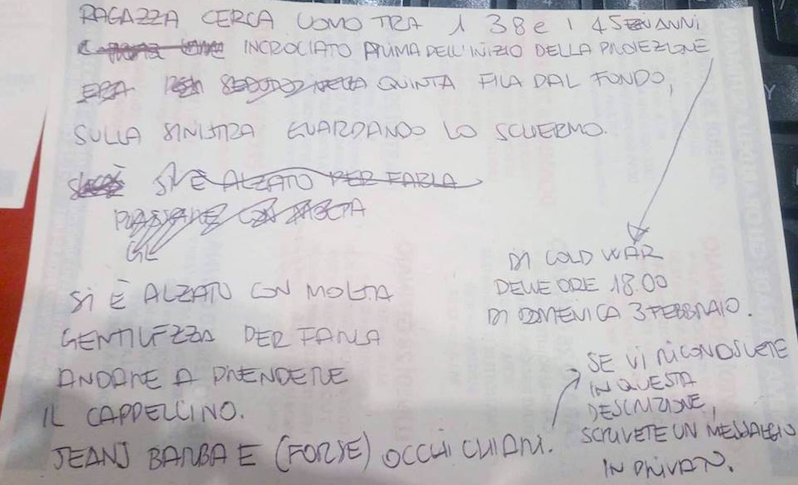 RAGAZZA CERCA UOMO TRA I 38 e I 45 ANNI
INCROCIATO PRIMA DELL'INIZIO DELLA PROIEZIONE
ERA SEDUTO NELLA QUINTA FILA DAL FONDO,
SULLA SINISTRA GUARDANDO LO SCHERMO.
SI È ALZATO PER FARLA
DI COLD WAR
DELLE ORE 18.00
DI DOMENICA 3 FEBBRAIO.
SI È ALZATO CON MOLTA
GENTILEZZA PER FARLA
ANDARE A PRENDERE
IL CAPPELLINO.
JEANS BARBA E (FORSE) OCCHI CHIARI.
SE VI RICONOSCETE
IN QUESTA
DESCRIZIONE,
SCRIVETE UN MESSAGGIO
IN PRIVATO.